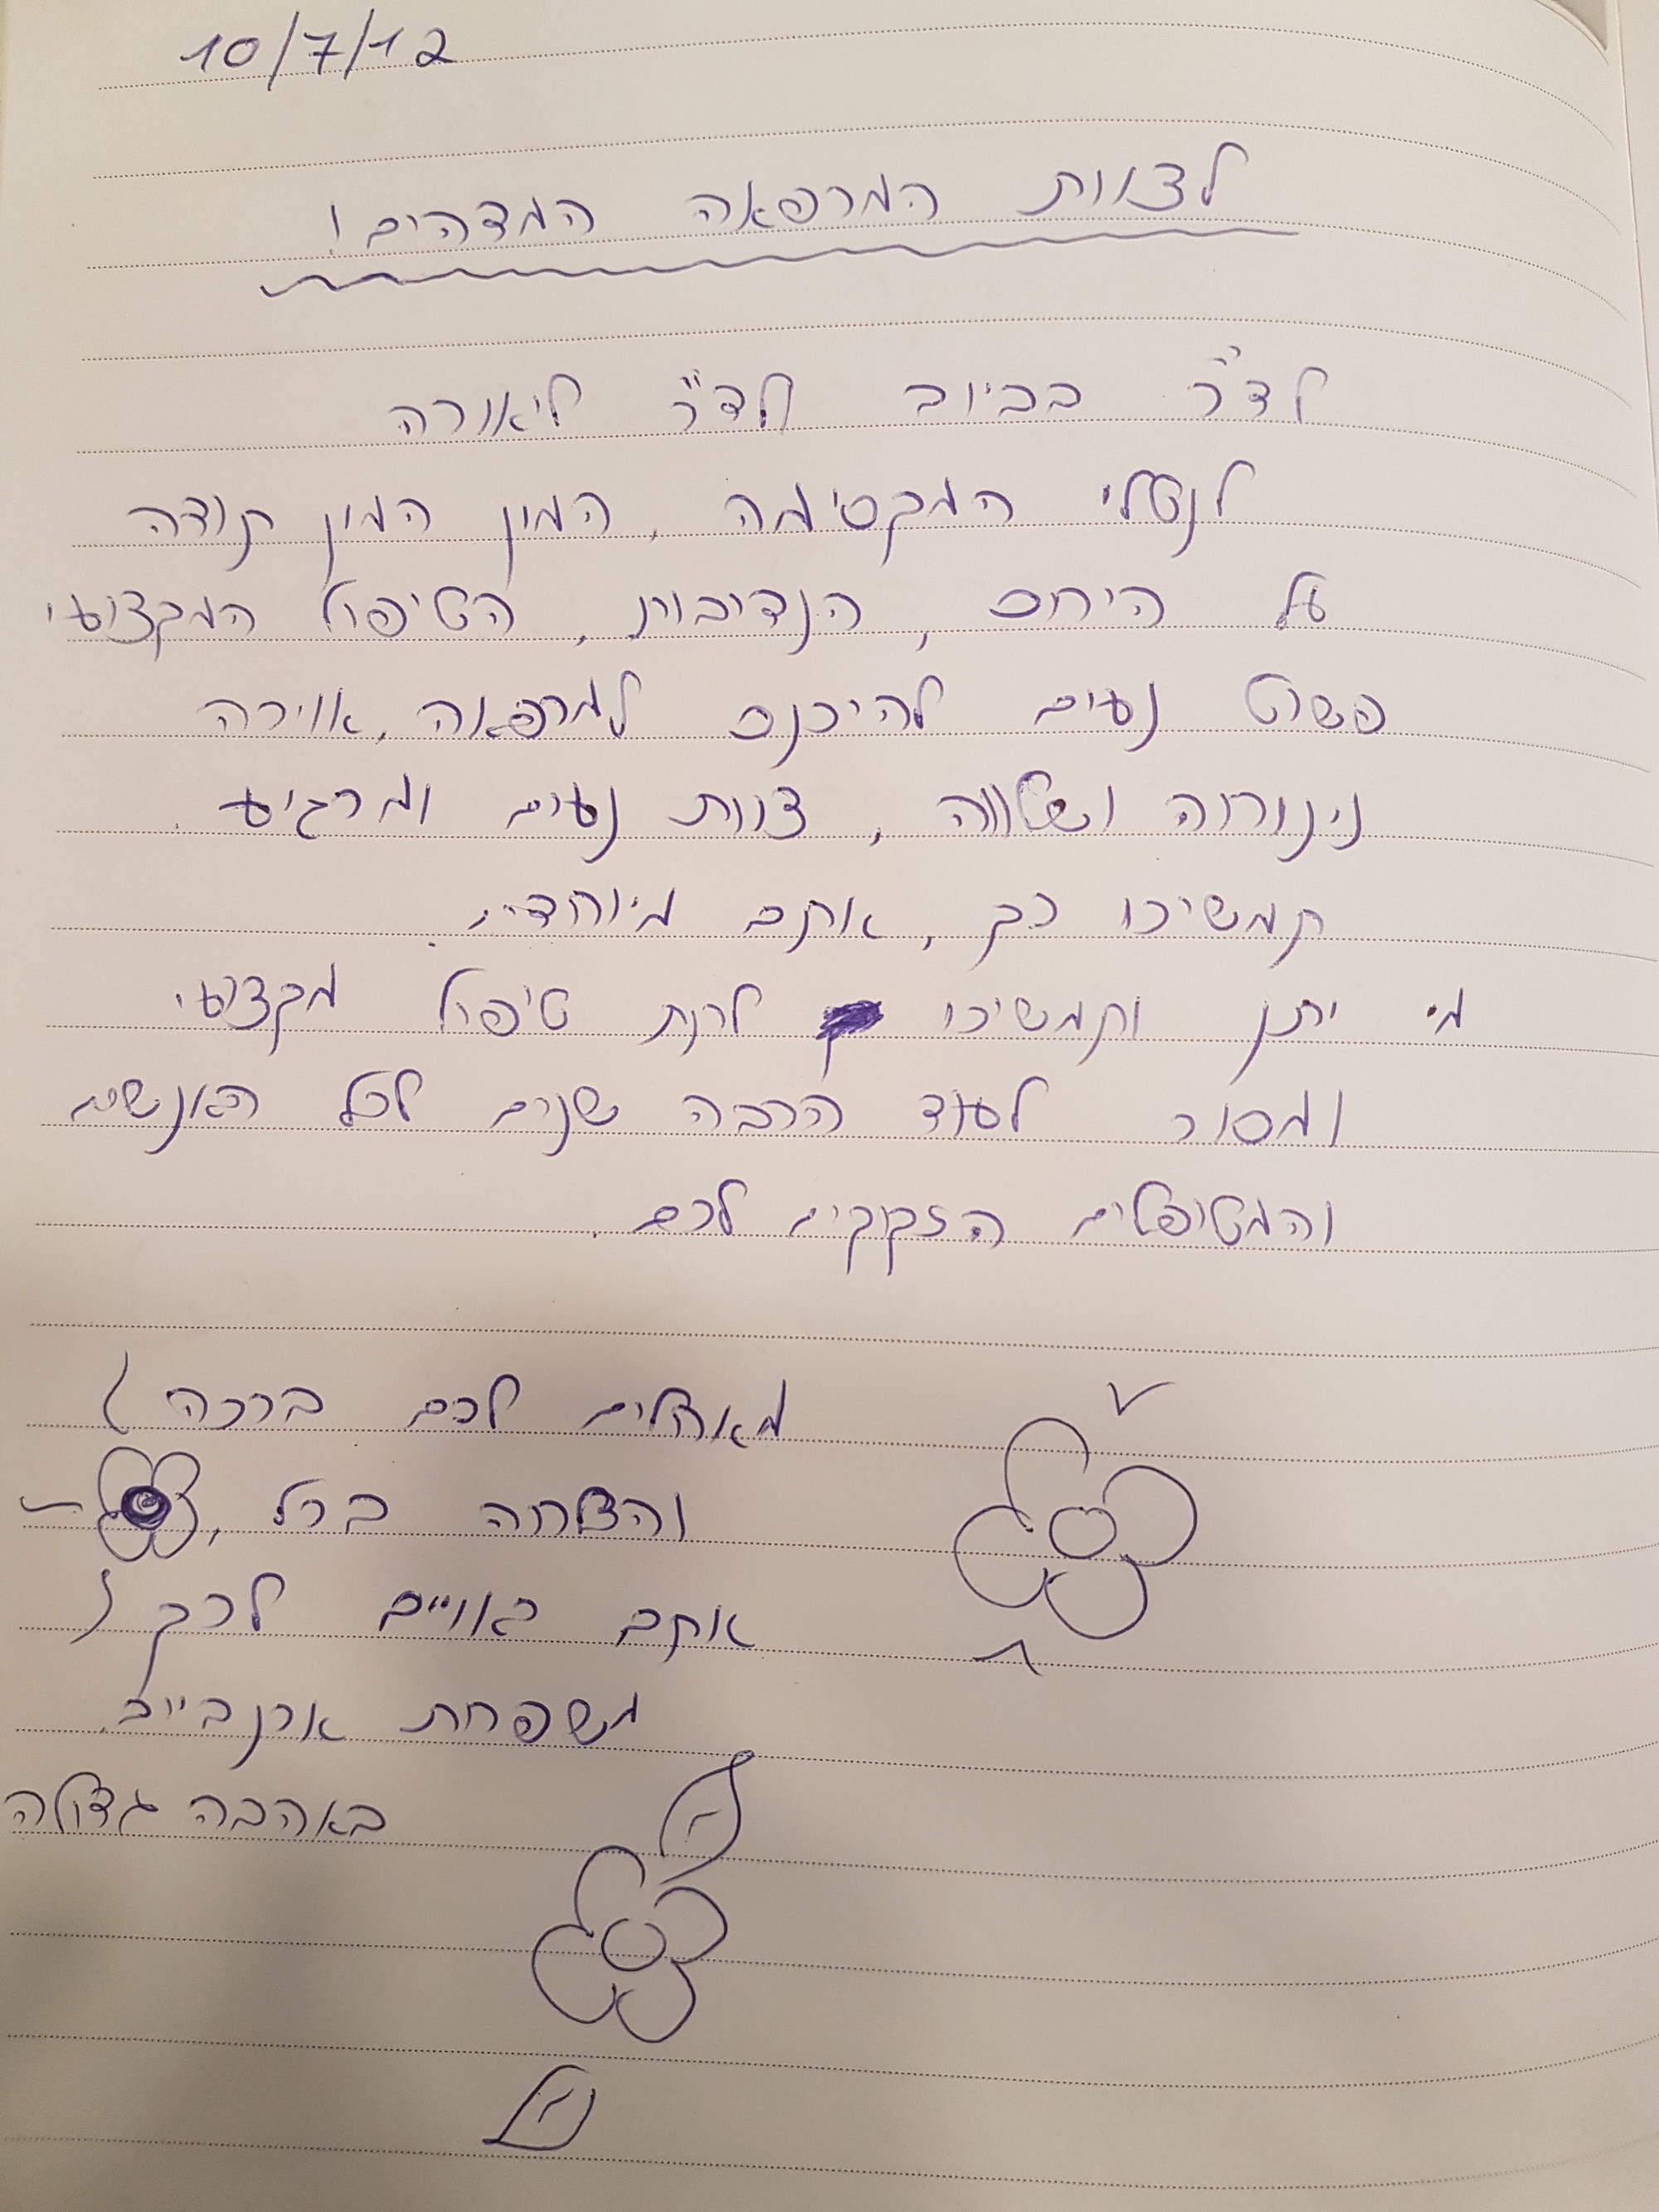 10/7/12
לצוות המרפאה המדהים!
לד"ר בביוב ולד"ר ליאורה
המקסימה, המון המון תודה
על היחס, הנדיבות, הטיפול המקצועי
פשוט נעים להיכנס למרפאה, אוירה
נינוחה ושלווה, צוות נעים ומרגיע.
תמשיכו כך, אתם מיוחדים.
מי יתן ותמשיכו לתת טיפול מקצועי
ומסור לעוד הרבה שנים לכל האנשים
והמטופלים הזקוקים לכם.
מאחלים לכם ברכה
והצלחה בכל,
אתם ראויים לכך
משפחת
באהבה גדולה